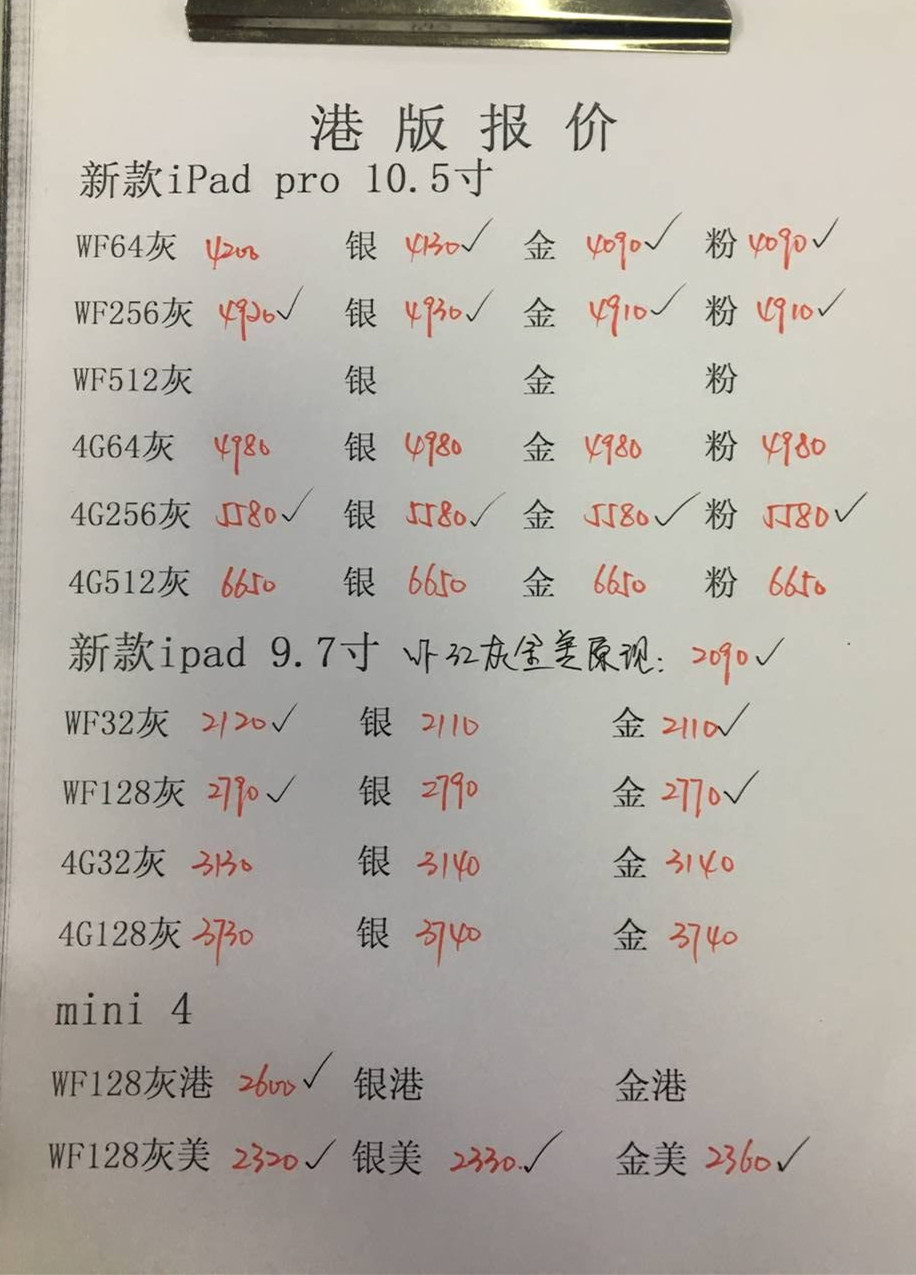 港版报价
新款iPad pro 10.5寸
WF64灰 4200 银 4130✓ 金 4090✓ 粉 4090✓
WF256灰 4920✓ 银 4930✓ 金 4910✓ 粉 4910✓
WF512灰 银 金 粉
4G64灰 4980 银 4980 金 4980 粉 4980
4G256灰 5580✓ 银 5580✓ 金 5580✓ 粉 5580✓
4G512灰 6650 银 6650 金 6650 粉 6650
新款ipad 9.7寸 wf 32灰金美原现: 2090✓
WF32灰 2120✓ 银 2110 金 2110✓
WF128灰 2790✓ 银 2790 金 2770✓
4G32灰 3130 银 3140 金 3140
4G128灰 3730 银 3740 金 3740
mini 4
WF128灰港 2600✓ 银港 金港
WF128灰美 2320✓ 银美 2330.✓ 金美 2360✓